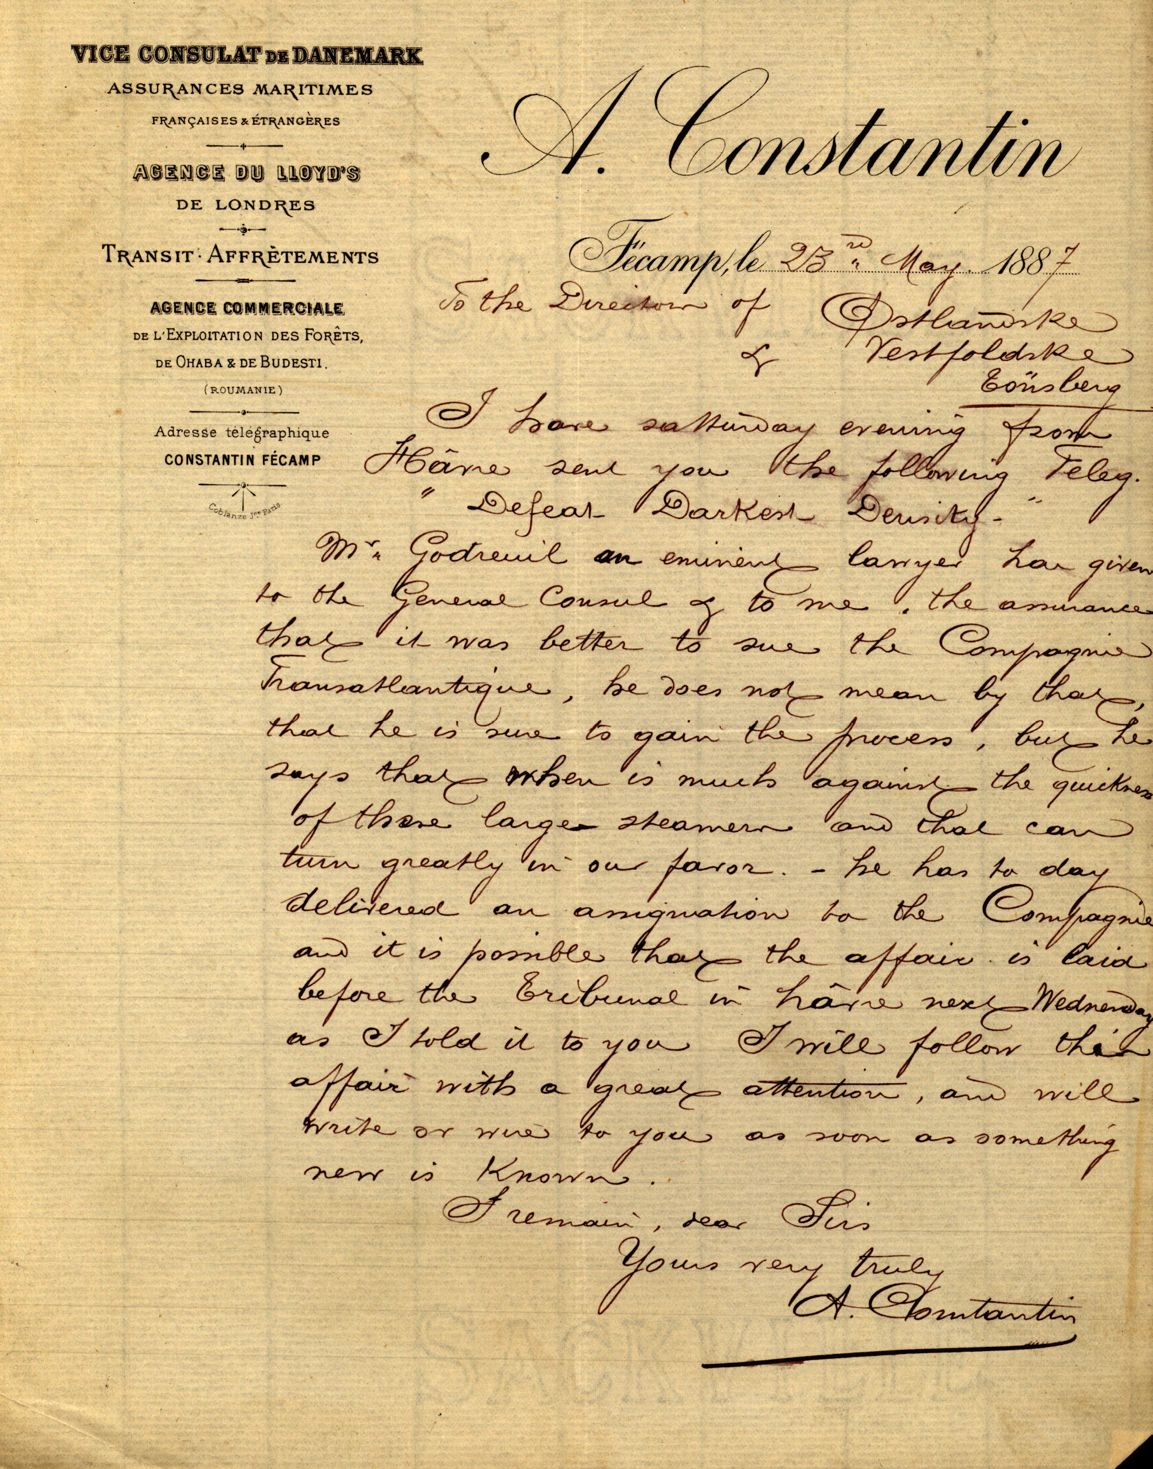 VICE CONSULAT DE DANEMARK
ASSURANCES MARITIMES
FRANÇAISES & ÉTRANGÈRES
AGENCE DU LLOYD'S
DE LONDRES
TRANSIT · AFFRÈTEMENTS
AGENCE COMMERCIALE
DE L'EXPLOITATION DES FORÊTS,
DE OHABA & DE BUDESTI.
(ROUMANIE)
Adresse télégraphique
CONSTANTIN FÉCAMP
A. Constantin
Fécamp, le 23rd May. 1887
To the Directors of Østlandske
& Vestfoldske
Tönsberg
I have satturday evening from
Hâvre sent you the following Teleg.
" Defeat Darkest Density - "
Mr. Godreuil an eminent lawyer has given
to the General Consul & to me, the assurance
that it was better to sue the Compagnie
Transatlantique, he does not mean by that,
that he is sure to gain the process, but he
says that when is much against the quickness
of these large steamers and that can
turn greatly in our favor. - he has to day
delivered an assignation to the Compagnie
and it is possible that the affair is laid
before the Tribunal in hâvre next Wednesday
as I told it to you I will follow this
affair with a great attention, and will
write or wire to you as soon as something
new is Known.
I remain, dear Sirs
Yours very truly
A. Constantin